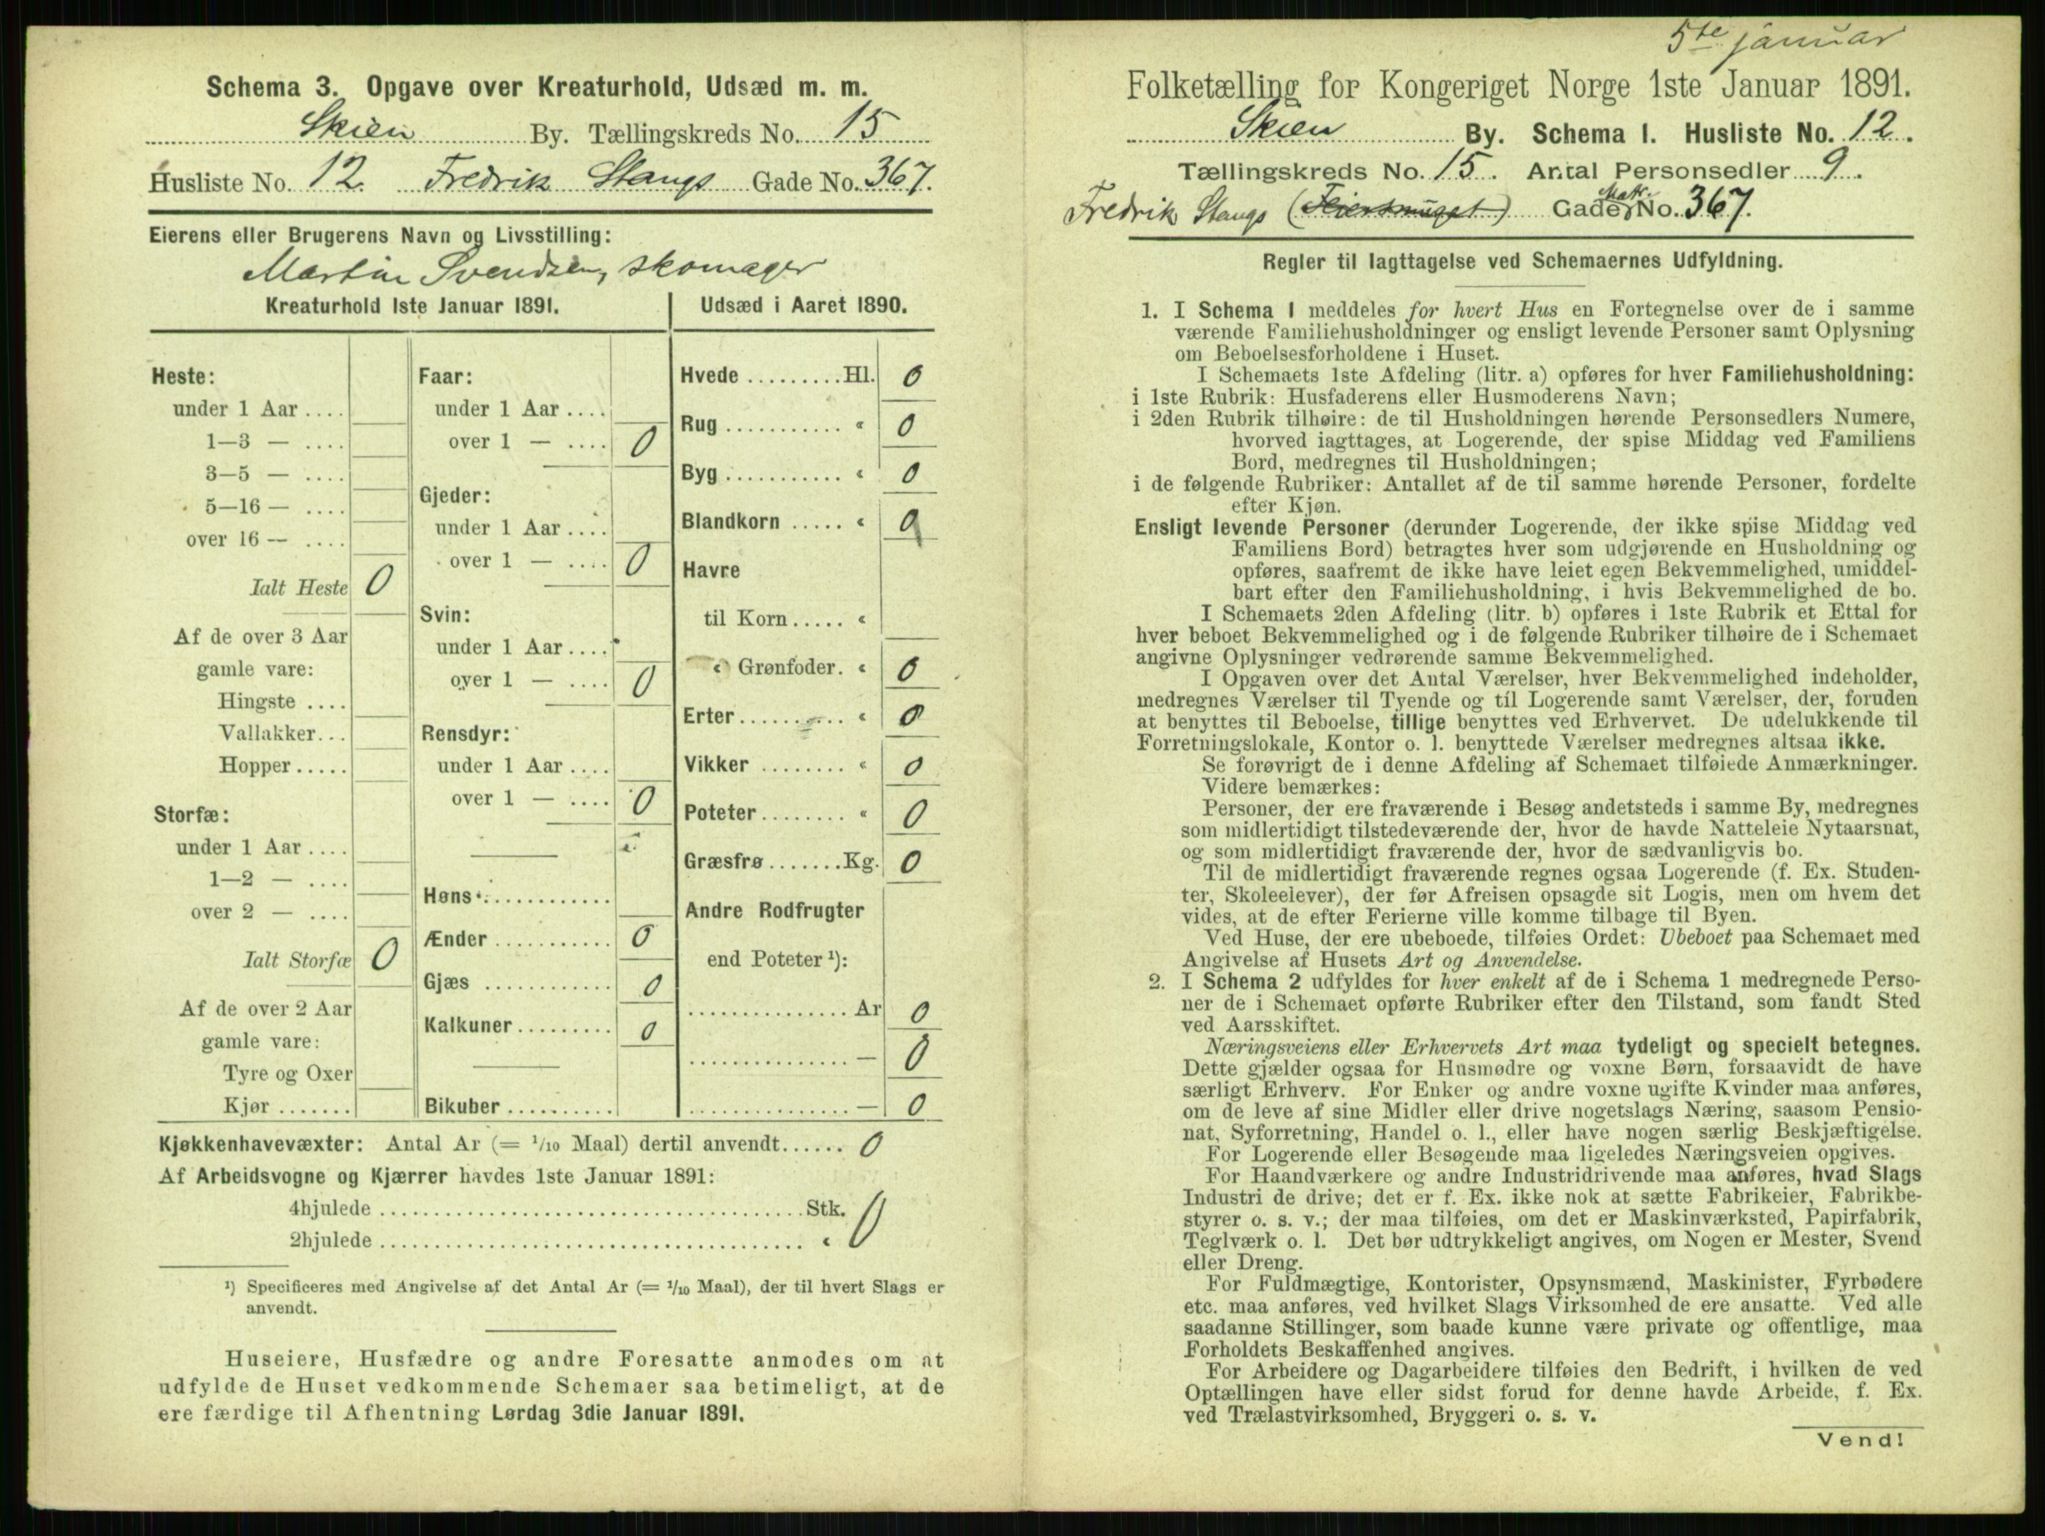 Schema 3. Opgave over Kreaturhold, Udsæd m. m.
Skien By. Tællingskreds No. 15
Husliste No. 12. Fredrik Stangs Gade No. 367.
Eierens eller Brugerens Navn og Livsstilling:
Martin Svendsen, skomager
Kreaturhold 1ste Januar 1891.
Heste:
under 1 Aar ....
1—3 — ....
3—5 — ....
5—16 — ....
over 16 — ....
Ialt Heste 0
Af de over 3 Aar
gamle vare:
Hingste ....
Vallakker...
Hopper.....
Storfæ:
under 1 Aar ....
1—2 — ....
over 2 — ....
Ialt Storfæ 0
Af de over 2 Aar
gamle vare:
Tyre og Oxer
Kjør .......
Faar:
under 1 Aar ....
over 1 — .... 0
Gjeder:
under 1 Aar ....
over 1 — .... 0
Svin:
under 1 Aar ....
over 1 — .... 0
Rensdyr:
under 1 Aar ....
over 1 — .... 0
Høns............
Ænder ........... 0
Gjæs ............ 0
Kalkuner......... 0
Bikuber..........
Udsæd i Aaret 1890.
Hvede .........Hl. 0
Rug ........... " 0
Byg ........... " 0
Blandkorn ..... " 0
Havre
til Korn..... "
" Grønfoder. " 0
Erter.......... " 0
Vikker ........ " 0
Poteter........ " 0
Græsfrø.......Kg. 0
Andre Rodfrugter
end Poteter ¹):
............... Ar 0
............... — 0
............... — 0
Kjøkkenhavevæxter: Antal Ar (= 1/10 Maal) dertil anvendt...... 0
Af Arbeidsvogne og Kjærrer havdes 1ste Januar 1891:
4hjulede ..................................... Stk.
2hjulede ..................................... " 0
¹) Specificeres med Angivelse af det Antal Ar (= 1/10 Maal), der til hvert Slags er
anvendt.
Huseiere, Husfædre og andre Foresatte anmodes om at
udfylde de Huset vedkommende Schemaer saa betimeligt, at de
ere færdige til Afhentning Lørdag 3die Januar 1891.
5te januar
Folketælling for Kongeriget Norge 1ste Januar 1891.
Skien By. Schema 1. Husliste No. 12.
Tællingskreds No. 15. Antal Personsedler 9.
Fredrik Stangs (Feiersmuget) Gade Matr. No. 367.
Regler til Iagttagelse ved Schemaernes Udfyldning.
1. I Schema 1 meddeles for hvert Hus en Fortegnelse over de i samme
værende Familiehusholdninger og ensligt levende Personer samt Oplysning
om Beboelsesforholdene i Huset.
I Schemaets 1ste Afdeling (litr. a) opføres for hver Familiehusholdning:
i 1ste Rubrik: Husfaderens eller Husmoderens Navn;
i 2den Rubrik tilhøire: de til Husholdningen hørende Personsedlers Numere,
hvorved iagttages, at Logerende, der spise Middag ved Familiens
Bord, medregnes til Husholdningen;
i de følgende Rubriker: Antallet af de til samme hørende Personer, fordelte
efter Kjøn.
Ensligt levende Personer (derunder Logerende, der ikke spise Middag ved
Familiens Bord) betragtes hver som udgjørende en Husholdning og
opføres, saafremt de ikke have leiet egen Bekvemmelighed, umiddel-
bart efter den Familiehusholdning, i hvis Bekvemmelighed de bo.
I Schemaets 2den Afdeling (litr. b) opføres i 1ste Rubrik et Ettal for
hver beboet Bekvemmelighed og i de følgende Rubriker tilhøire de i Schemaet
angivne Oplysninger vedrørende samme Bekvemmelighed.
I Opgaven over det Antal Værelser, hver Bekvemmelighed indeholder,
medregnes Værelser til Tyende og til Logerende samt Værelser, der, foruden
at benyttes til Beboelse, tillige benyttes ved Erhvervet. De udelukkende til
Forretningslokale, Kontor o. l. benyttede Værelser medregnes altsaa ikke.
Se forøvrigt de i denne Afdeling af Schemaet tilføiede Anmærkninger.
Videre bemærkes:
Personer, der ere fraværende i Besøg andetsteds i samme By, medregnes
som midlertidigt tilstedeværende der, hvor de havde Natteleie Nytaarsnat,
og som midlertidigt fraværende der, hvor de sædvanligvis bo.
Til de midlertidigt fraværende regnes ogsaa Logerende (f. Ex. Studen-
ter, Skoleelever), der før Afreisen opsagde sit Logis, men om hvem det
vides, at de efter Ferierne ville komme tilbage til Byen.
Ved Huse, der ere ubeboede, tilføies Ordet: Ubeboet paa Schemaet med
Angivelse af Husets Art og Anvendelse.
2. I Schema 2 udfyldes for hver enkelt af de i Schema 1 medregnede Perso-
ner de i Schemaet opførte Rubriker efter den Tilstand, som fandt Sted
ved Aarsskiftet.
Næringsveiens eller Erhvervets Art maa tydeligt og specielt betegnes.
Dette gjælder ogsaa for Husmødre og voxne Børn, forsaavidt de have
særligt Erhverv. For Enker og andre voxne ugifte Kvinder maa anføres,
om de leve af sine Midler eller drive nogetslags Næring, saasom Pensio-
nat, Syforretning, Handel o. l., eller have nogen særlig Beskjæftigelse.
For Logerende eller Besøgende maa ligeledes Næringsveien opgives.
For Haandværkere og andre Industridrivende maa anføres, hvad Slags
Industri de drive; det er f. Ex. ikke nok at sætte Fabrikeier, Fabrikbe-
styrer o. s. v.; der maa tilføies, om det er Maskinværksted, Papirfabrik,
Teglværk o. l. Det bør udtrykkeligt angives, om Nogen er Mester, Svend
eller Dreng.
For Fuldmægtige, Kontorister, Opsynsmænd, Maskinister, Fyrbødere
etc. maa anføres, ved hvilket Slags Virksomhed de ere ansatte. Ved alle
saadanne Stillinger, som baade kunne være private og offentlige, maa
Forholdets Beskaffenhed angives.
For Arbeidere og Dagarbeidere tilføies den Bedrift, i hvilken de ved
Optællingen have eller sidst forud for denne havde Arbeide, f. Ex.
ved Trælastvirksomhed, Bryggeri o. s. v.
Vend!